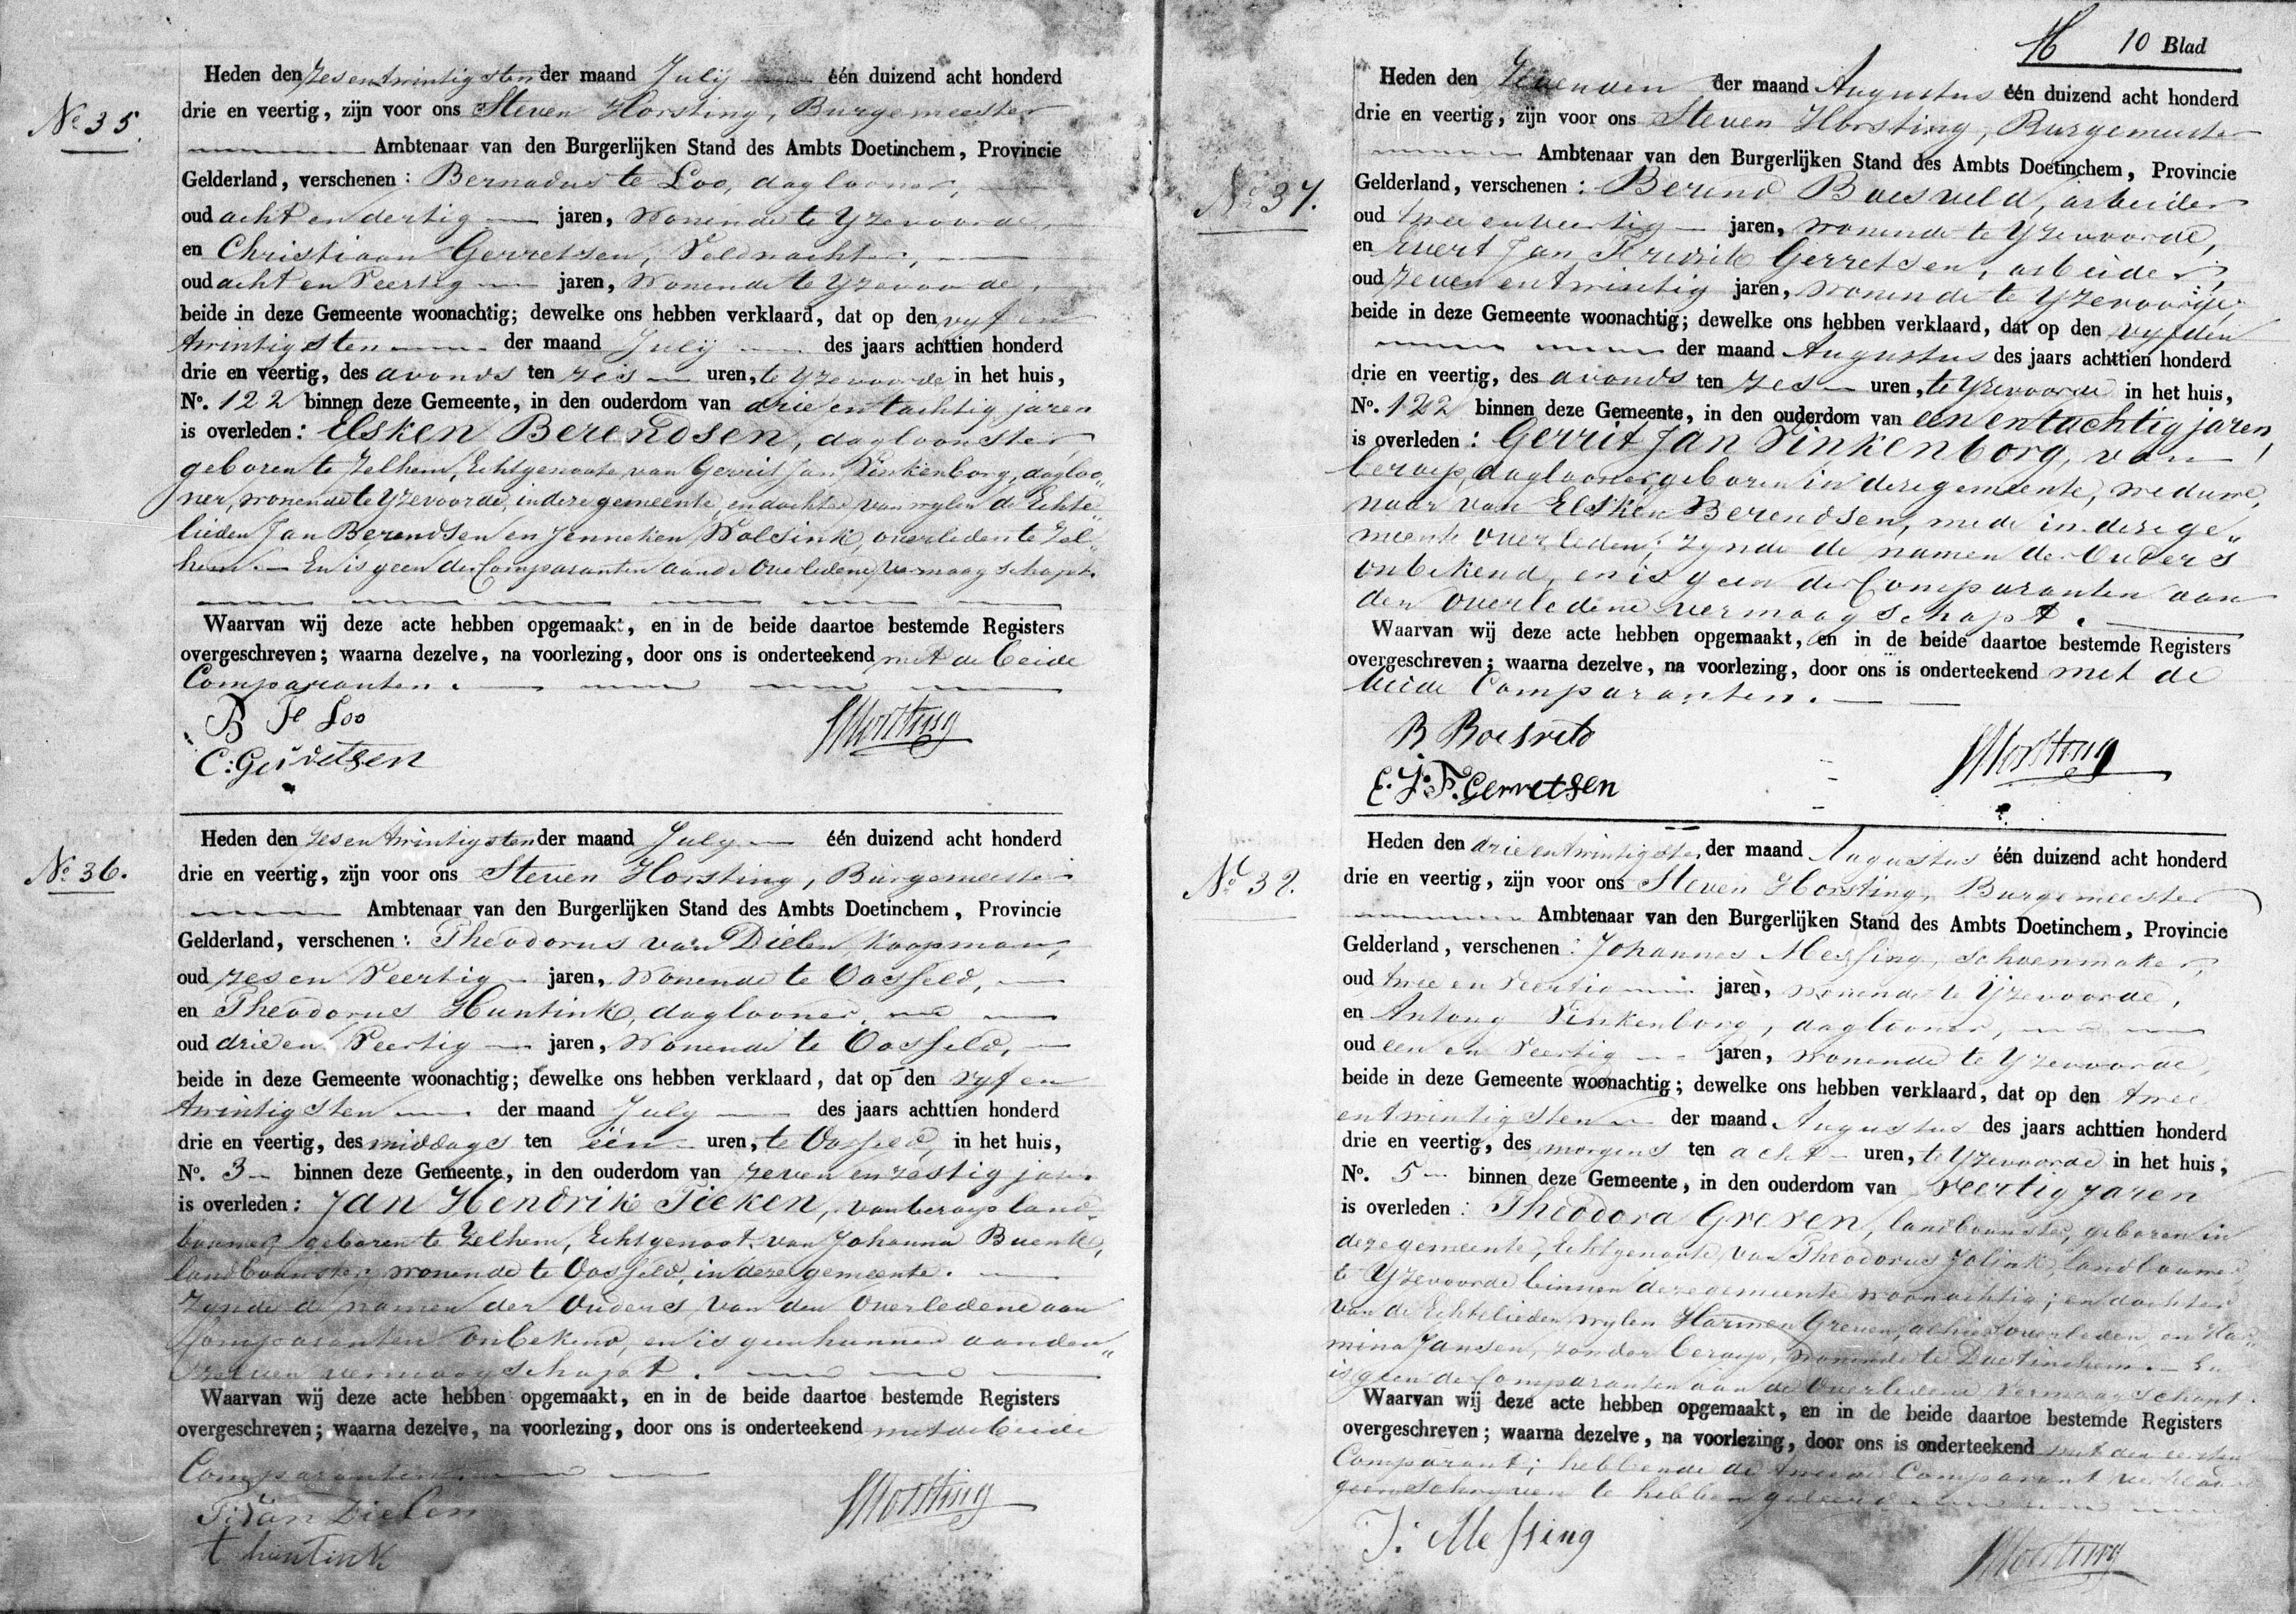 Nº 35.
Heden den zesentwintigsten der maand July één duizend acht honderd
drie en veertig, zijn voor ons Steven Horsting, Burgemeester
Ambtenaar van den Burgerlijken Stand des Ambts Doetinchem, Provincie
Gelderland, verschenen: Bernadus te Loo, daglooner,
oud acht en dertig jaren, wonende te Yzevoorde,
en Christiaan Gerretsen, Veldwachter,
oud acht en Veertig jaren, wonende te Yzevoorde,
beide in deze Gemeente woonachtig; dewelke ons hebben verklaard, dat op den vyf en
twintigsten der maand July des jaars achttien honderd
drie en veertig, des avonds ten zes uren, te Yzevoorde in het huis,
Nº. 122 binnen deze Gemeente, in den ouderdom van drie en tachtig jaren
is overleden: Elsken Berendsen, dagloonster
geboren te Zelhem, Echtgenoote van Gerrit Jan Vinkenborg, dagloo„
ner, wonende te Yzevoorde, in deze gemeente, en dochter van wylen de Echte„
lieden Jan Berendsen en Jenneken Wolsink, overleden te Zel„
hem. En is geen der Comparanten aan de Overledene vermaagschapt.
Waarvan wij deze acte hebben opgemaakt, en in de beide daartoe bestemde Registers
overgeschreven; waarna dezelve, na voorlezing, door ons is onderteekend met de beide
Comparanten.
B te Loo
SHorsting
C: Gerretsen
Nº 36.
Heden den zesentwintigsten der maand July één duizend acht honderd
drie en veertig, zijn voor ons Steven Horsting, Burgemeester
Ambtenaar van den Burgerlijken Stand des Ambts Doetinchem, Provincie
Gelderland, verschenen: Theodorus van Dielen, Koopman,
oud zes en Veertig jaren, wonende te Oosseld,
en Theodorus Huntink, daglooner,
oud drie en Veertig jaren, wonende te Oosseld,
beide in deze Gemeente woonachtig; dewelke ons hebben verklaard, dat op den vyf en
twintigsten der maand July des jaars achttien honderd
drie en veertig, des middags ten één uren, te Oosseld, in het huis,
Nº. 3 binnen deze Gemeente, in den ouderdom van zeven en zestig jaren
is overleden: Jan Hendrik Tieken, van beroep land„
bouwer geboren te Zelhem, Echtgenoot van Johanna
landbouwster, wonende te Oosseld, in deze gemeente.
Zynde de namen der Ouders van den Overledene aan
Comparanten onbekend, en is geen hunner aan den„
zelven vermaagschapt.
Waarvan wij deze acte hebben opgemaakt, en in de beide daartoe bestemde Registers
overgeschreven; waarna dezelve, na voorlezing, door ons is onderteekend met de beide
Comparanten.
T: van Dielen
SHorsting
t huntink
10 Blad
Nº 37.
Heden den Zevenden der maand Augustus één duizend acht honderd
drie en veertig, zijn voor ons Steven Horsting, Burgemeester
Ambtenaar van den Burgerlijken Stand des Ambts Doetinchem, Provincie
Gelderland, verschenen: Berend Boesveld, arbeider
oud twee en veertig jaren, wonende te Yzevoorde,
en Evert Jan Fredrik Gerretsen, arbeider,
oud zeven en twintig jaren, wonende te Yzevoorde
beide in deze Gemeente woonachtig; dewelke ons hebben verklaard, dat op den vyfden
der maand Augustus des jaars achttien honderd
drie en veertig, des avonds ten zes uren, te Yzevoorde in het huis,
Nº. 122 binnen deze Gemeente, in den ouderdom van een en tachtig jaren,
is overleden: Gerrit Jan Vinkenborg, van
beroep, daglooner, geboren in deze gemeente, weduwe„
naar van Elsken Berendsen, mede in deze ge„
meente overleden; zynde de namen der Ouders
onbekend, en is geen der Comparanten aan
den overledene vermaagschapt.
Waarvan wij deze acte hebben opgemaakt, en in de beide daartoe bestemde Registers
overgeschreven; waarna dezelve, na voorlezing, door ons is onderteekend met de
beide Comparanten.
B Boesveld
SHorsting
E. J. F. Gerretsen
Nº 38.
Heden den drie en twintigsten der maand Augustus één duizend acht honderd
drie en veertig, zijn voor ons Steven Horsting, Burgemeester
Ambtenaar van den Burgerlijken Stand des Ambts Doetinchem, Provincie
Gelderland, verschenen: Johannes Messing, schoenmaker,
oud twee en veertig jaren, wonende te Yzevoorde,
en Antony Vinkenborg, daglooner,
oud een en Veertig jaren, wonende te Yzevoorde,
beide in deze Gemeente woonachtig; dewelke ons hebben verklaard, dat op den twee
en twintigsten der maand Augustus des jaars achttien honderd
drie en veertig, des morgens ten acht uren, te Yzevoorde in het huis,
Nº. 5 binnen deze Gemeente, in den ouderdom van Veertig jaren
is overleden: Theodora Greven, landbouwster, geboren in
deze gemeente, Echtgenoote van Theodorus Jolink, landbouwer
te Yzevoorde binnen deze gemeente woonachtig; en dochter
van de Echtelieden wylen Harmen Greven, alhier overleden en Har„
mina Jansen, zonder beroep, wonende te Doetinchem. En
is geen der Comparanten aan de Overledene vermaagschapt.
Waarvan wij deze acte hebben opgemaakt, en in de beide daartoe bestemde Registers
overgeschreven; waarna dezelve, na voorlezing, door ons is onderteekend met den eersten
Comparant; hebbende de tweede Comparant verklaard
geen schryven te hebben geleerd
J: Messing
SHorsting